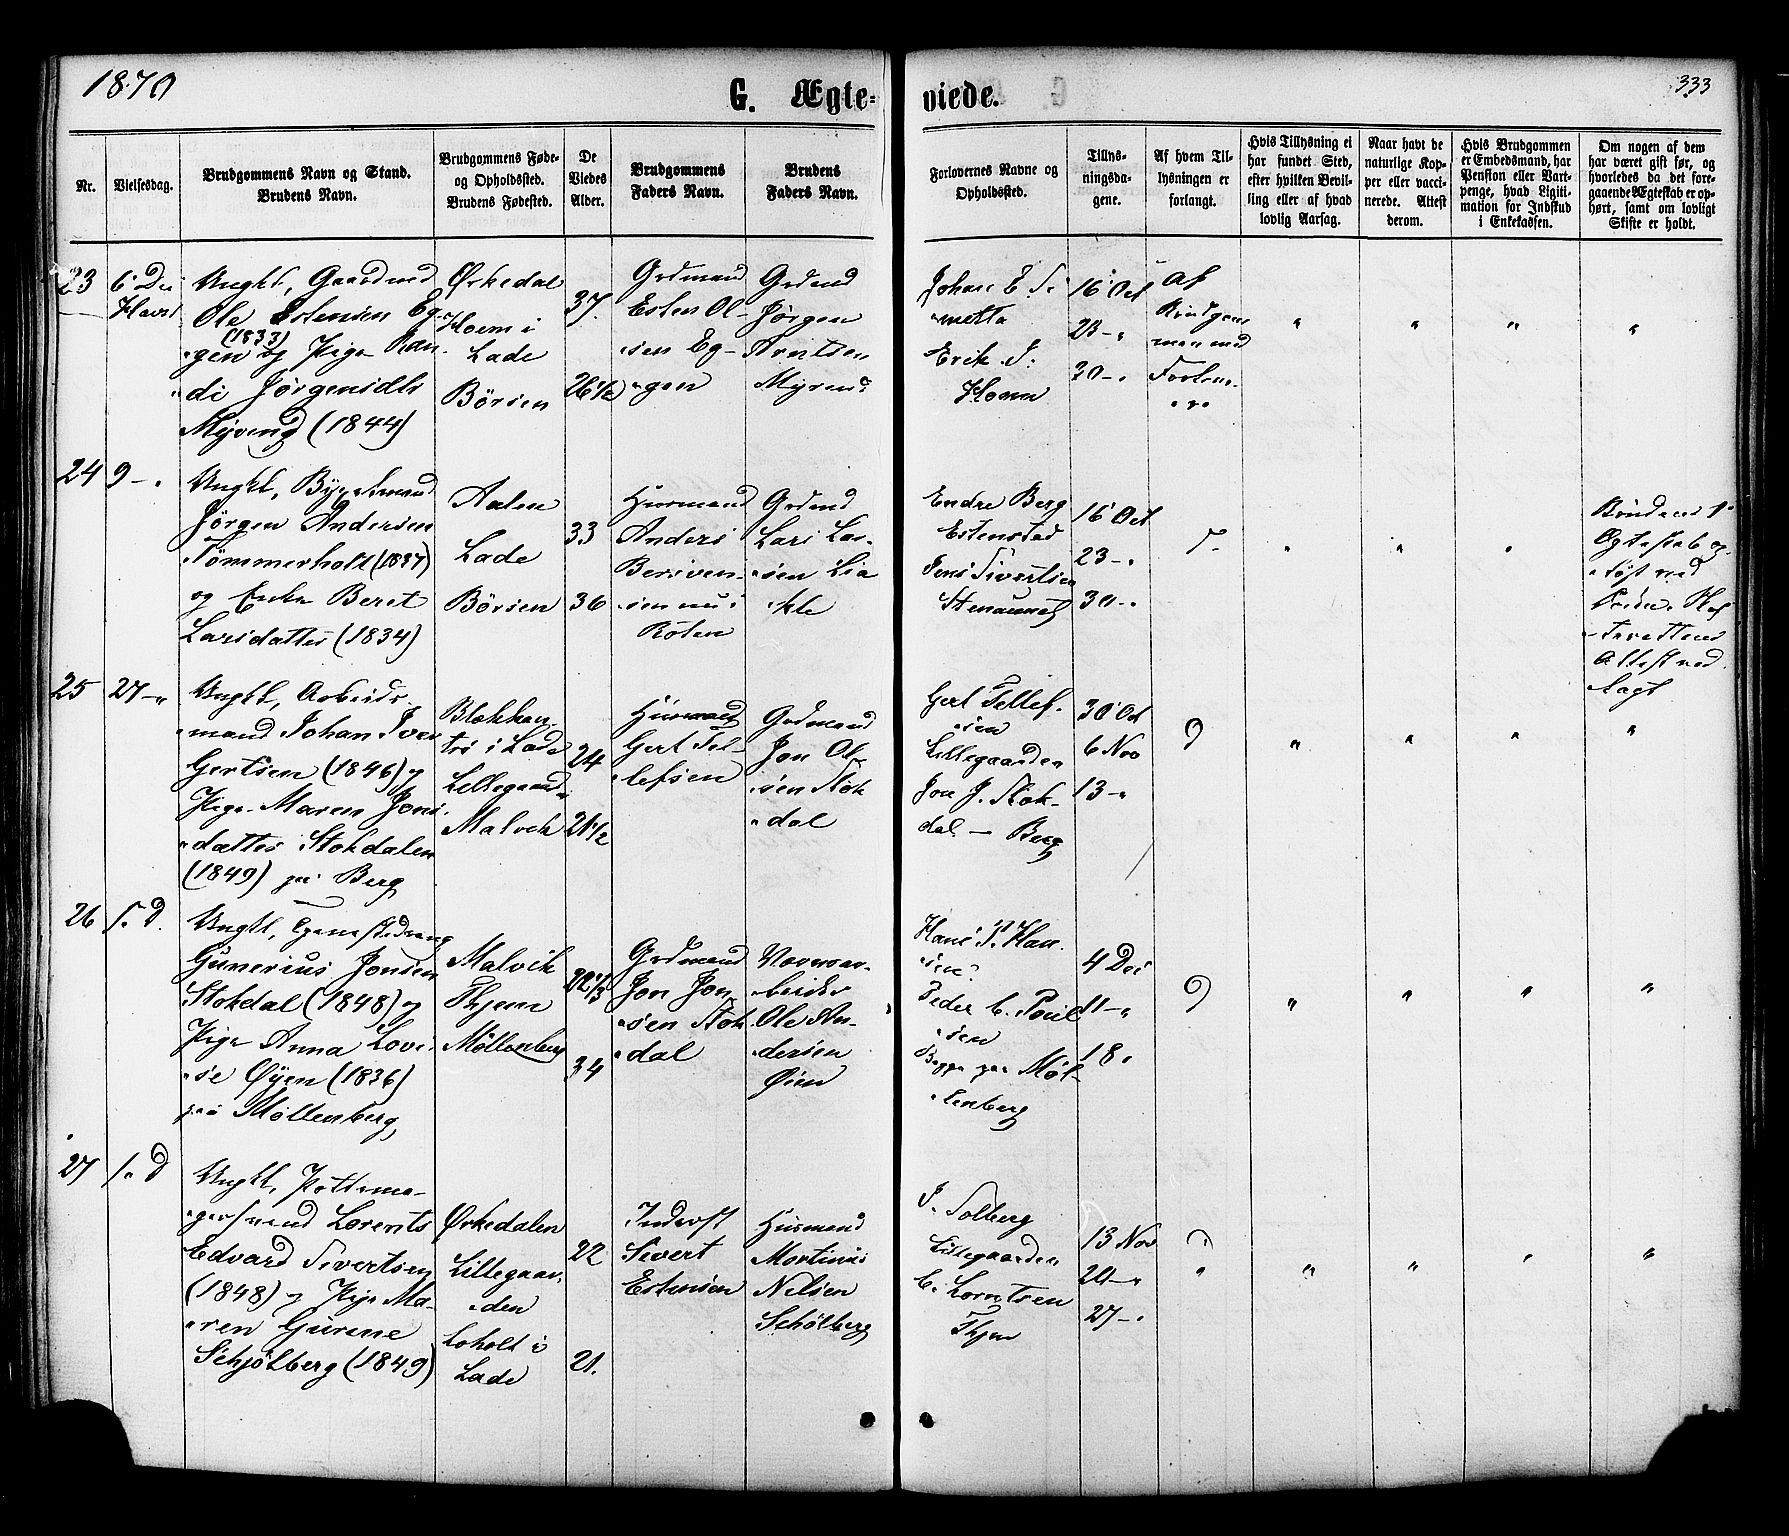 1870
G. Ægte-
viede.
333
Nr.
Vielsesdag.
Brudgommens Navn og Stand.
Brudens Navn.
Brudgommens Føde-
og Opholdssted.
Brudens Fødested.
De
Viedes
Alder.
Brudgommens
Faders Navn.
Brudens
Faders Navn.
Forlovernes Navne og
Opholdssted.
Tillys-
ningsda-
gene.
Af hvem Til-
lysningen er
forlangt.
Hvis Tillysning ei
har fundet Sted,
efter hvilken Bevil-
ling eller af hvad
lovlig Aarsag.
Naar havt de
naturlige Kop-
per eller vacci-
nerede. Attest
derom.
Hvis Brudgommen
er Embedsmand, har
Pension eller Vart-
penge, hvad Ligiti-
mation for Indskud
i Enkekassen.
Om nogen af dem
har været gift før, og
hvorledes da det fore-
gaaende Ægteskab er op-
hørt, samt om lovligt
Skifte er holdt.
23
Ungkl, Gaardmd
Ole Estensen Eg-
(1833)
gen og Pige Ran-
di Jørgensdtr
(1844)
Ørkedal
i
Lade
Börsen
37.
26 1/2
Grdmand
Esten Ol-
sen Eg-
gen
Grdmd
Jörgen
Arntsen
Johan E.
Erik J.
16 Oct
23 - "
30 - "
Af
Brudgom-
men med
Forlove-
re
" " " "
24
9 - "
Ungkl,
Jörgen Andersen
Tømmerholt (1837)
og Enke Beret
Larsdatter (1834)
Aalen
Lade
Börsen
33
36
Husmand
Anders
sen nu i
Grdmd
Lars Lar-
sen Lia
Endre Berg
Estenstad
Jens Sivertsen
16 Oct
23 - "
30 - "
" " "
Brudens 1ste
Egteskab op-
løst ved
Attest ved
lagt
25
27 - "
Ungkl, Arbeids-
mand Johan Iver
Gertsen (1846) og
Pige Maren Jons-
datter Stokdalen
(1849) paa Berg
i Lade
Lillegaarden
Malvik
24
21 1/2
Husmand
Gert Tel-
lefsen
Grdmand
Jon Ol-
sen Stok
dal
Gert Tellef-
sen
Lillegaarden
Jon J. Stok-
dal - Berg
30 Oct
6 Nov
13 - "
" " " "
26
Ungkl,
Gunerius Jonsen
Stokdal (1848) og
Pige Anna Lovi-
se Øyen (1836)
paa Møllenberg
Malvik
Thjem
Møllenberg
22 1/3
34
Grdmand
Jon Jon
sen Stok
dal
beider
Ole An-
dersen
Øien
Hans P. Han-
sen
Peder C. Poul
sen
paa Møl-
lenberg
4 Dec
11 - "
18 "
" " " "
27
Ungkl, Pottema-
gersvend Lorents
Edvard Sivertsen
(1848) og Pige Ma-
ren Gurine
Schjölberg (1849)
Ørkedalen
Lillegaar-
den
Loholt i
Lade
22
21.
Inderst
Sivert
Estensen
Husmand
Martinus
Nilsen
Schölberg
J. Solberg
Lillegaarden
C. Lorntsen
Thjem
13 Nov
20 - "
27 - "
" " " " "